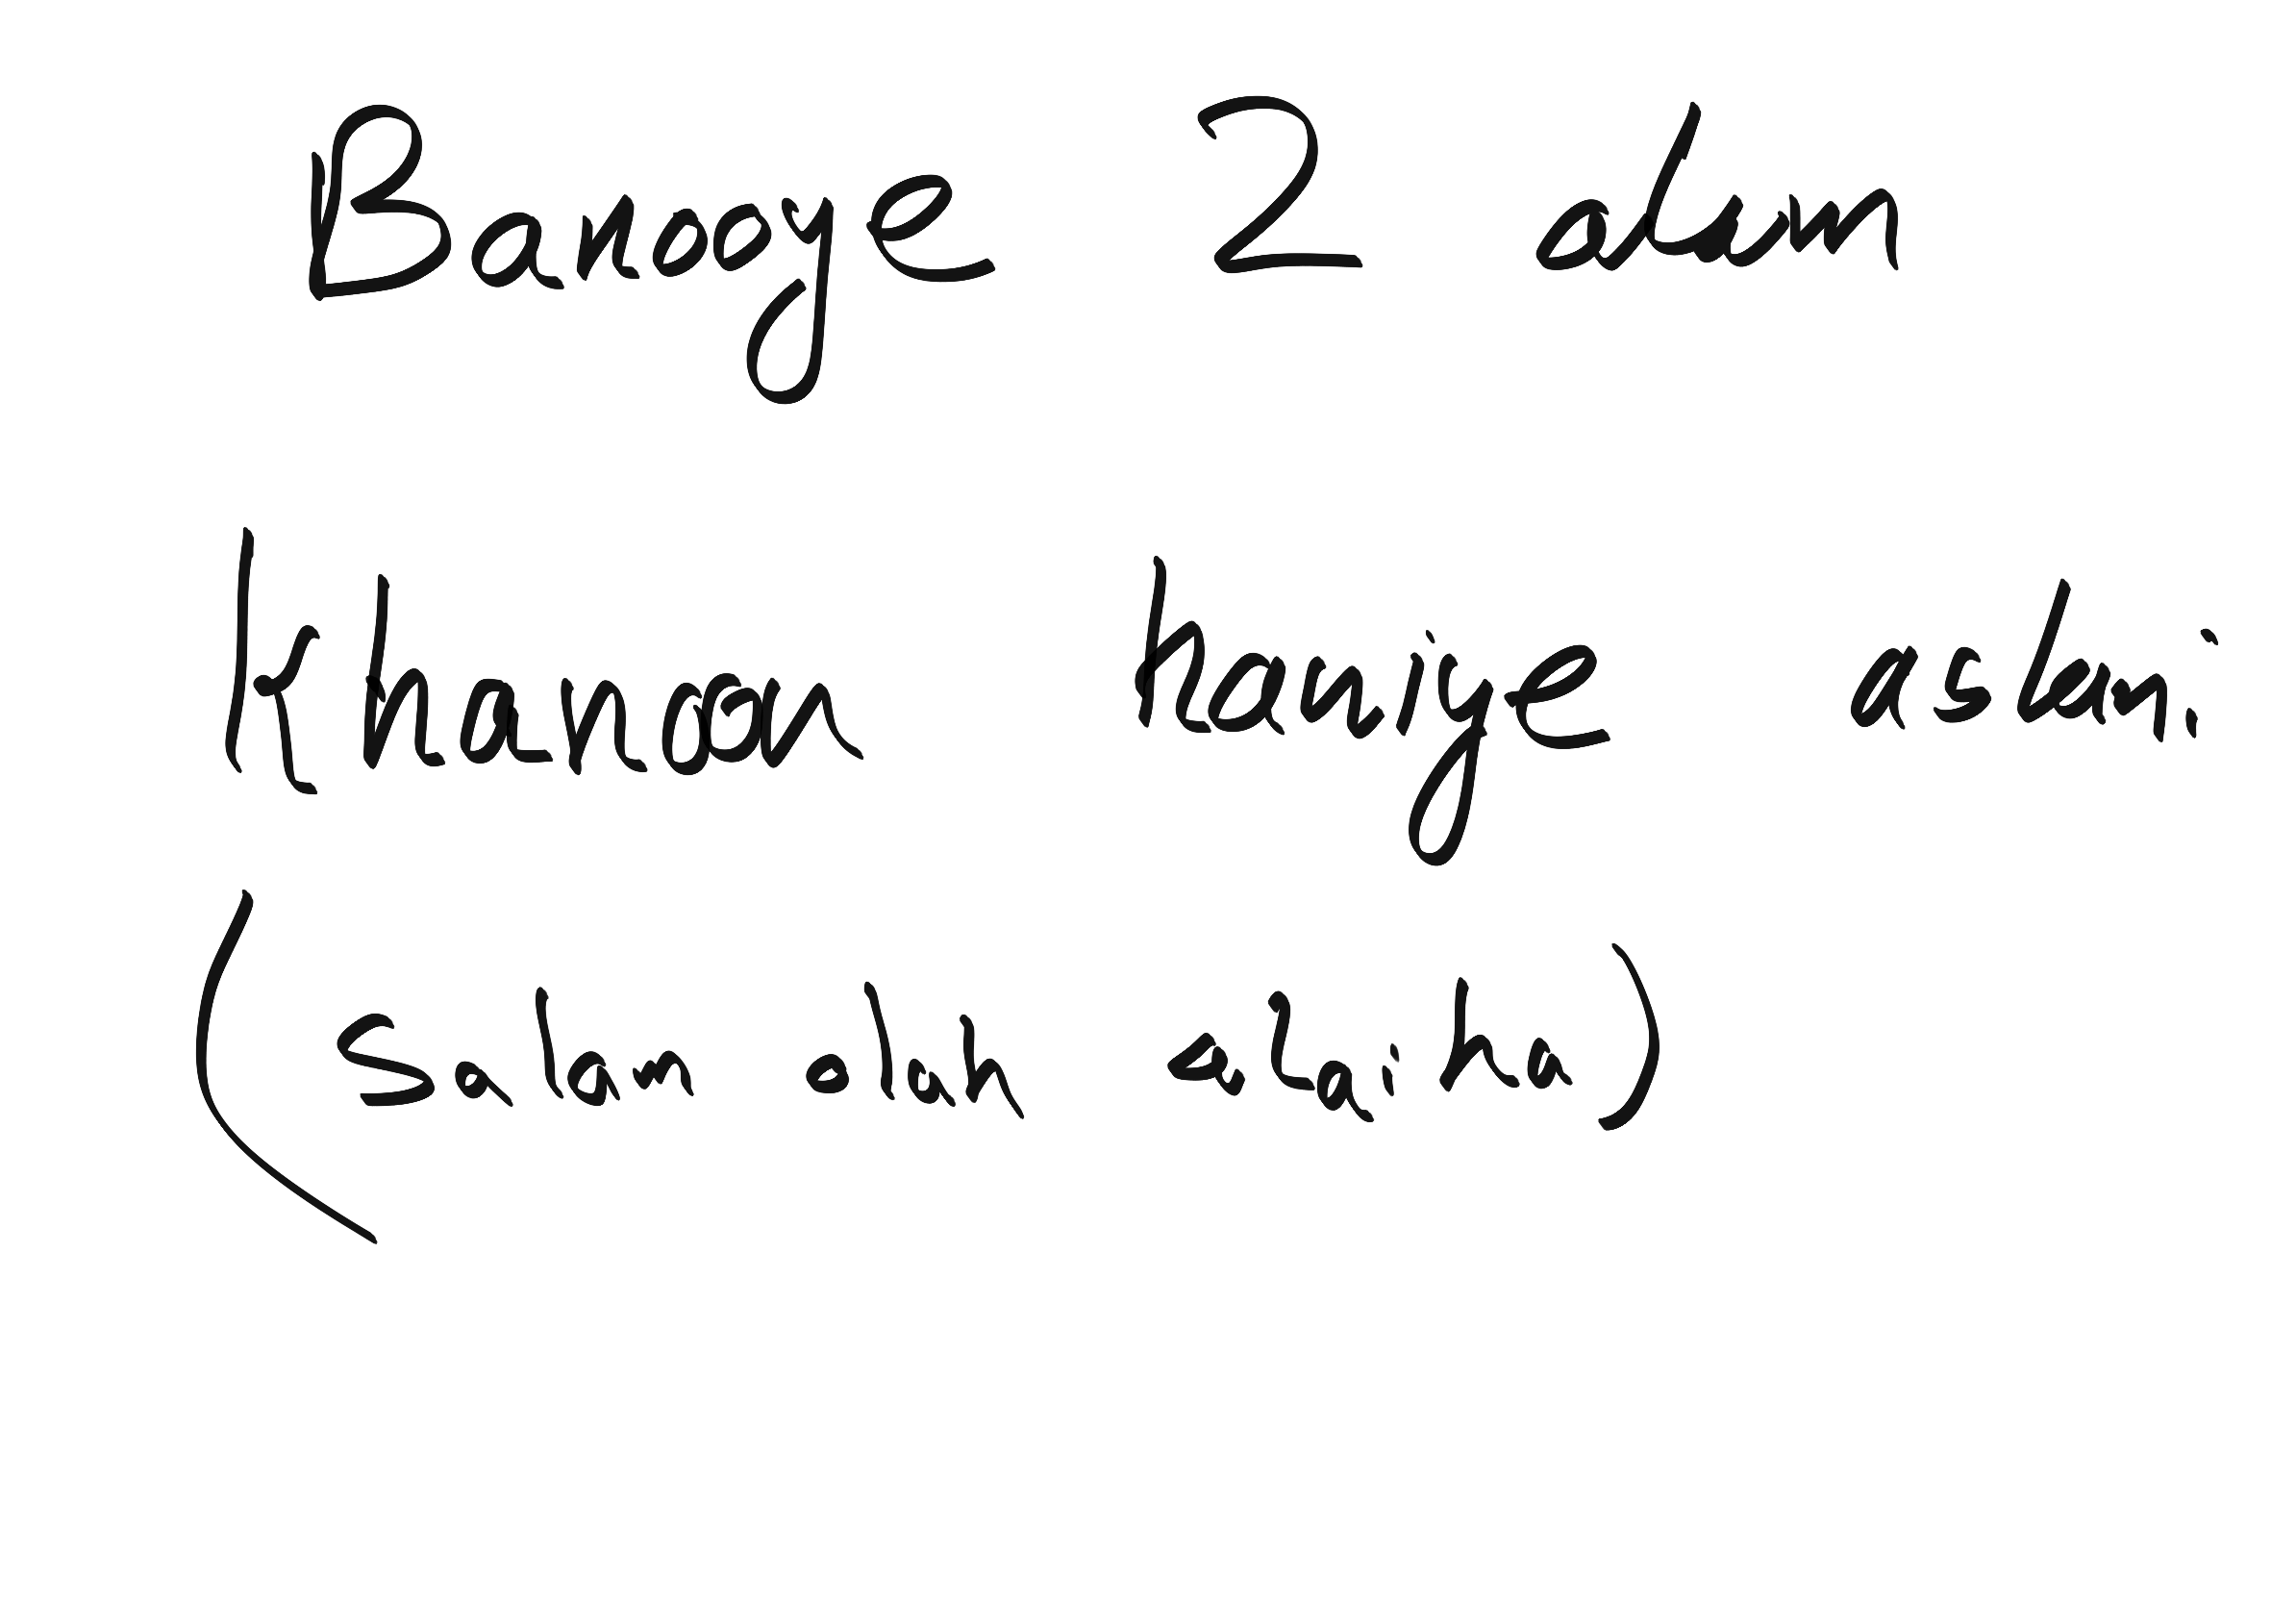 Banooye 2 alam
Khanoom haniye aslani
(Salam olah alaiha)